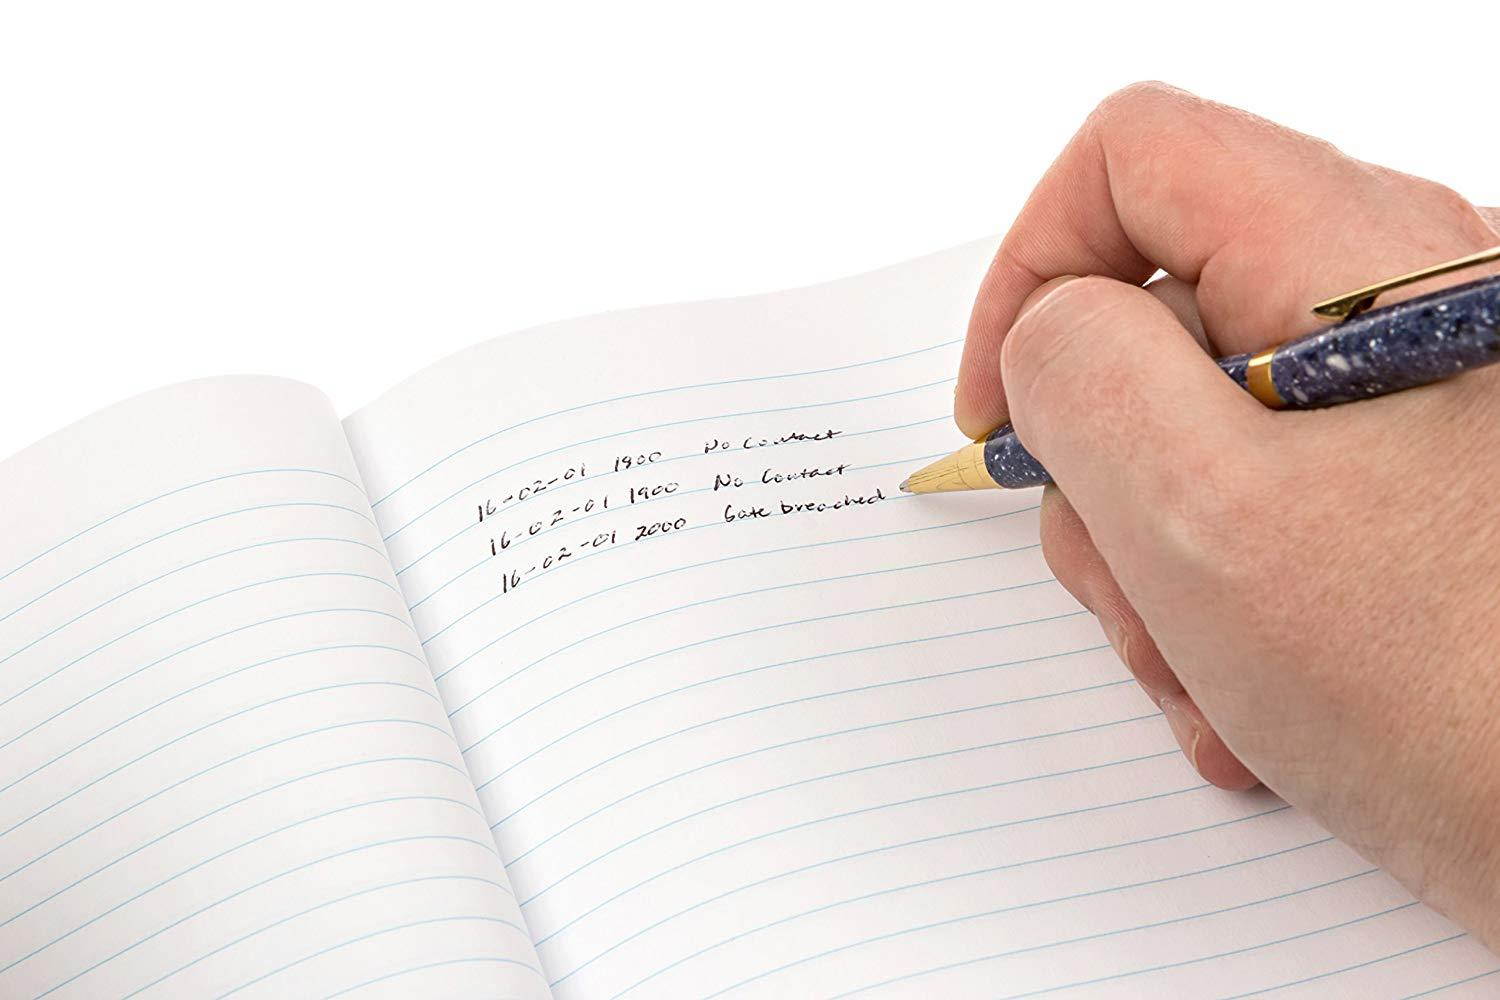 16-02-01 1800 No Contact
16-02-01 1900 No Contact
16-02-01 2000 Gate breached